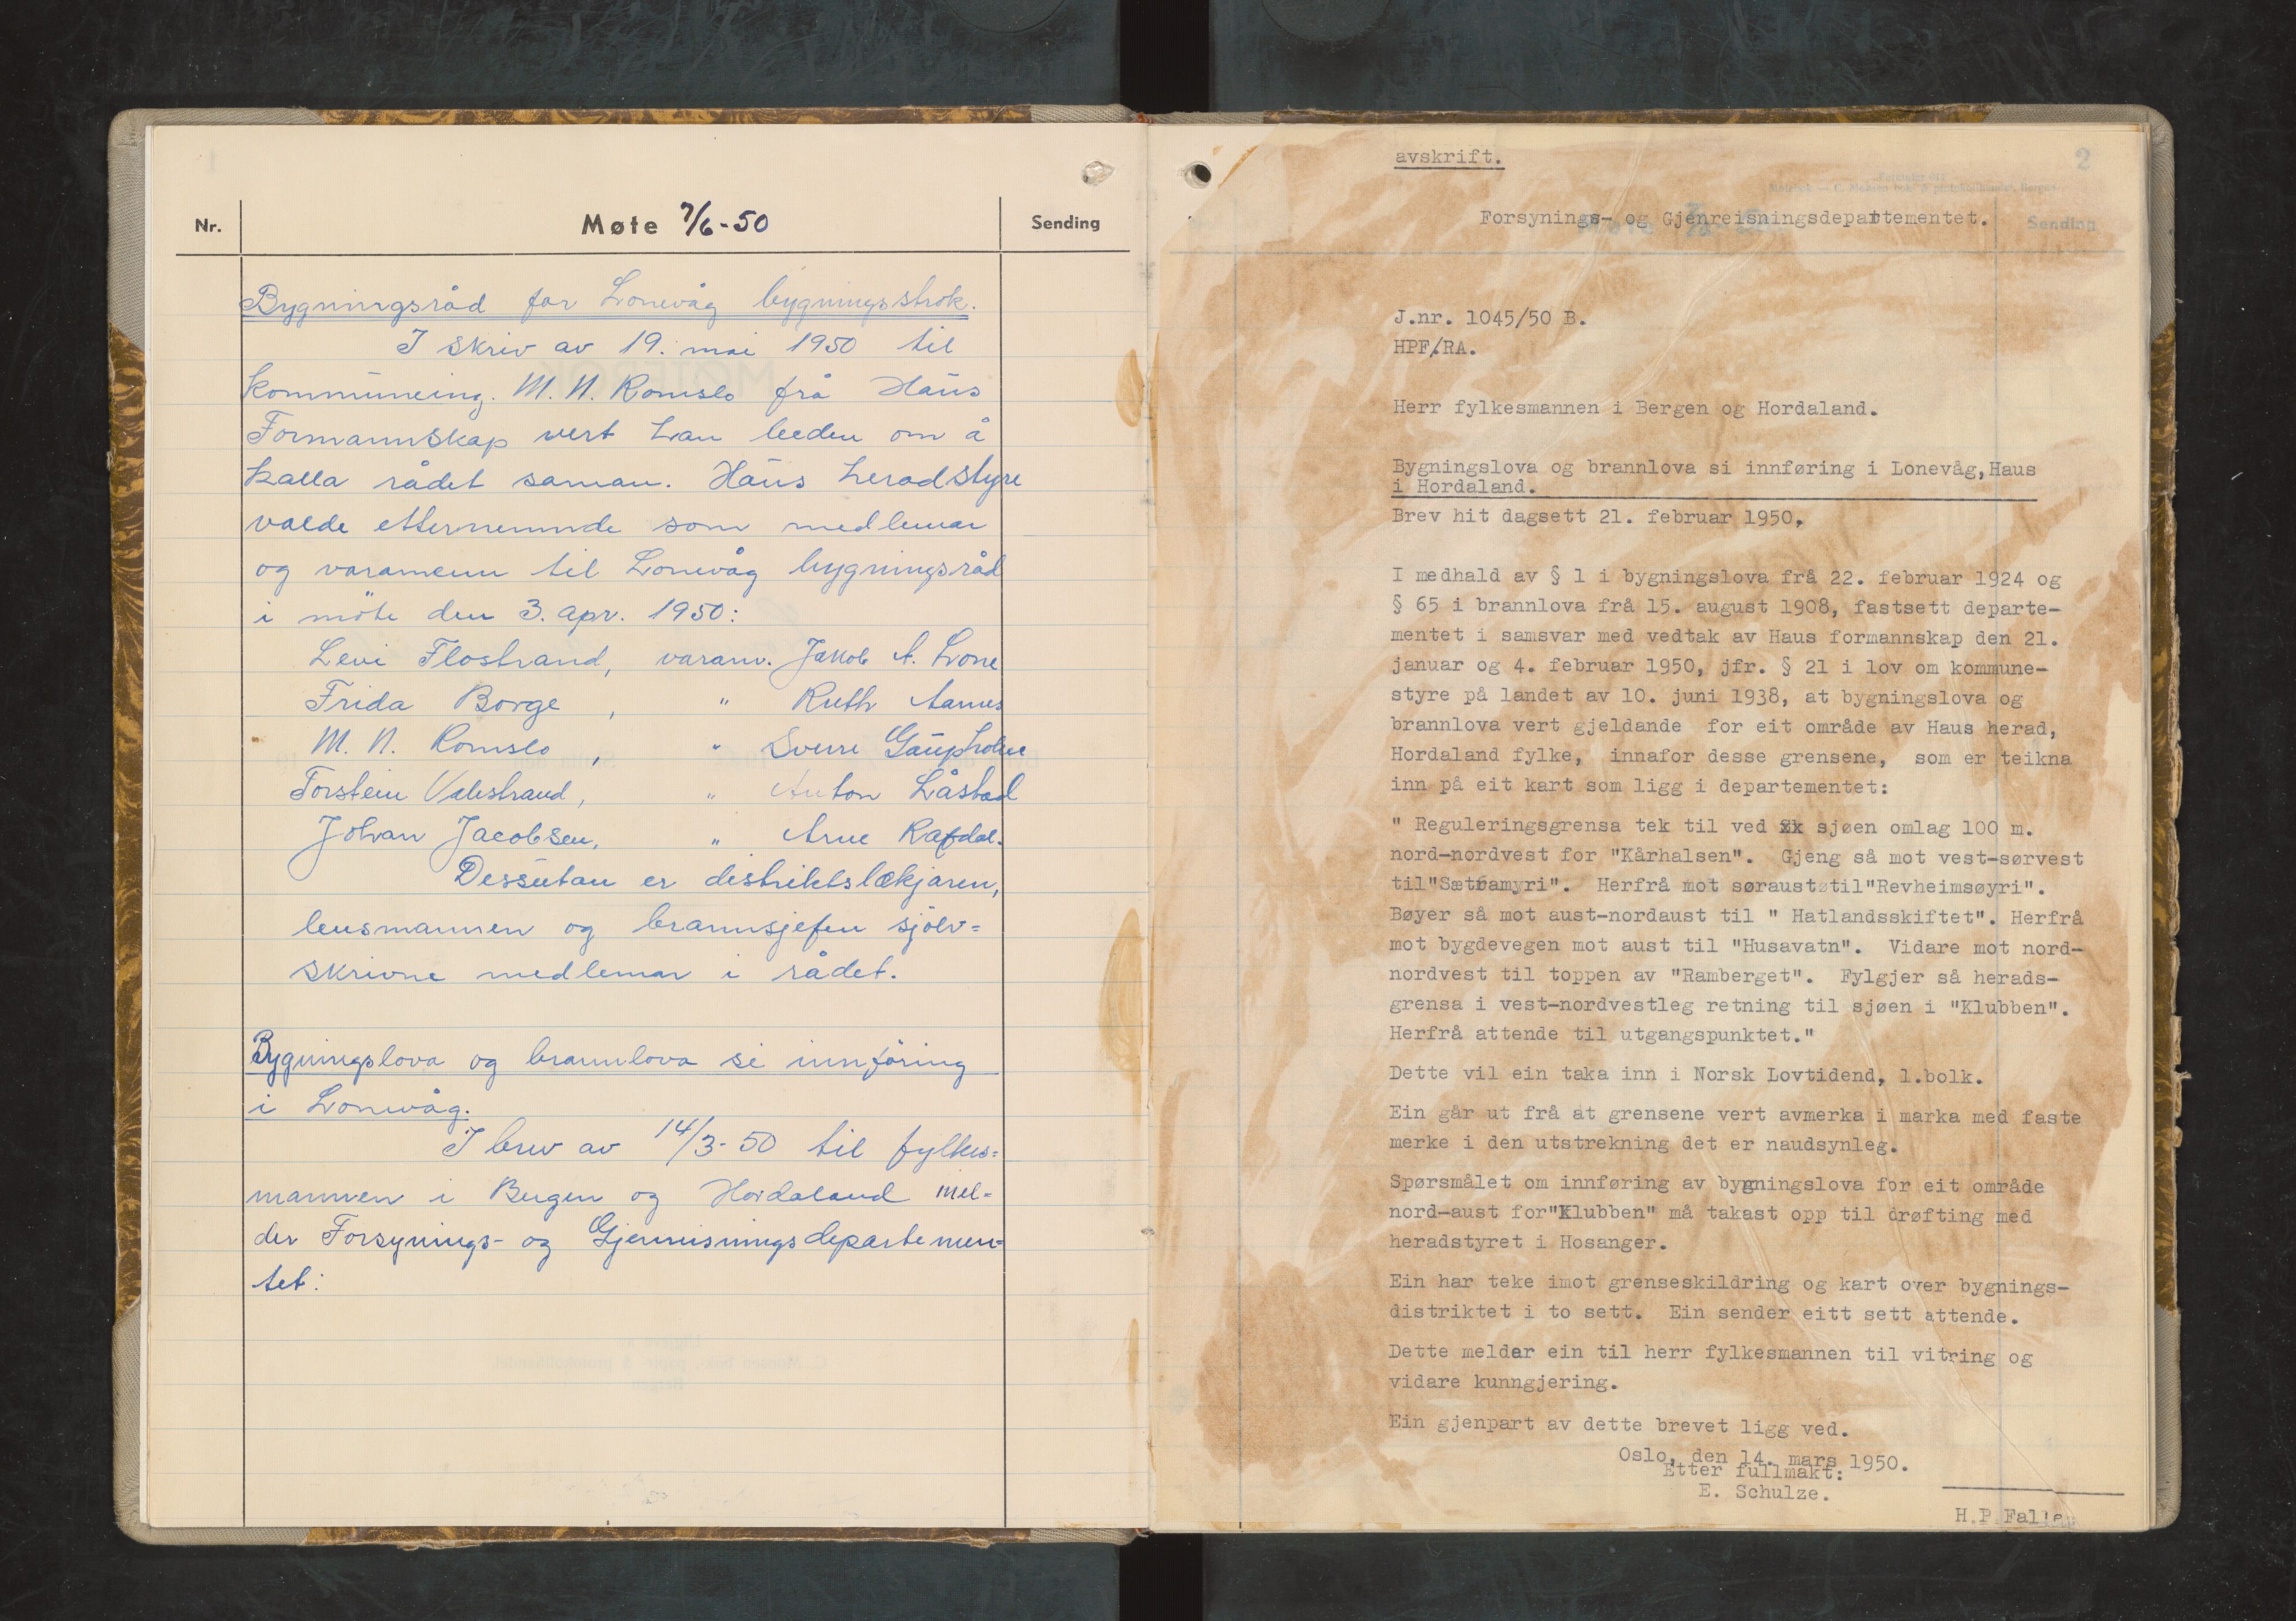 Nr.
Møte 7/6-50
Sending
Bygningsråd for Lonevåg bygningsstrok.
I skriv av 19. mai 1950 til
kommuneing. M. N. Romslo frå Haus
Formannskap vert han beden om å
kalla rådet saman. Haus heradstyre
valde etternemnde som medlemar
og varamenn til Lonevåg bygningsråd
i möte den 3. apr. 1950:
Levi Flostrand, varam. Jakob A. Lone
Frida Borge, " Ruth Aanes
M. N. Romslo, " Sverre Gaupholm
Torstein Valestrand, " Anton Låstad
Johan Jacobsen, " Arne Rafdal.
Dessutan er distriktslækjaren,
lensmannen og brannsjefen sjölv=
skrivne medlemar i rådet.
Bygningslova og brannlova si innföring
i Lonevåg.
I brev av 14/3-50 til fylkes=
mannen i Bergen og Hordaland mel=
der Forsynings- og Gjenreisningsdepartemen=
tet:
avskrift.
2
Forsynings- og Gjenreisningsdepartementet.
Sending
J.nr. 1045/50 B.
HPF/RA.
Herr fylkesmannen i Bergen og Hordaland.
Bygningslova og brannlova si innføring i Lonevåg,Haus
i Hordaland.
Brev hit dagsett 21. februar 1950.
I medhald av § 1 i bygningslova frå 22. februar 1924 og
§ 65 i brannlova frå 15. august 1908, fastsett departe-
mentet i samsvar med vedtak av Haus formannskap den 21.
januar og 4. februar 1950, jfr. § 21 i lov om kommune-
styre på landet av 10. juni 1938, at bygningslova og
brannlova vert gjeldande for eit område av Haus herad,
Hordaland fylke, innafor desse grensene, som er teikna
inn på eit kart som ligg i departementet:
" Reguleringsgrensa tek til ved sjøen omlag 100 m.
nord-nordvest for "Kårhalsen". Gjeng så mot vest-sørvest
til"Sætramyri". Herfrå mot søraust til"Revheimsøyri".
Bøyer så mot aust-nordaust til " Hatlandsskiftet". Herfrå
mot bygdevegen mot aust til "Husavatn". Vidare mot nord-
nordvest til toppen av "Ramberget". Fylgjer så herads-
grensa i vest-nordvestleg retning til sjøen i "Klubben".
Herfrå attende til utgangspunktet."
Dette vil ein taka inn i Norsk Lovtidend, 1.bolk.
Ein går ut frå at grensene vert avmerka i marka med faste
merke i den utstrekning det er naudsynleg.
Spørsmålet om innføring av bygningslova for eit område
nord-aust for"Klubben" må takast opp til drøfting med
heradstyret i Hosanger.
Ein har teke imot grenseskildring og kart over bygnings-
distriktet i to sett. Ein sender eitt sett attende.
Dette melder ein til herr fylkesmannen til vitring og
vidare kunngjering.
Ein gjenpart av dette brevet ligg ved.
Oslo, den 14. mars 1950.
Etter fullmakt:
E. Schulze.
H.P.Falle